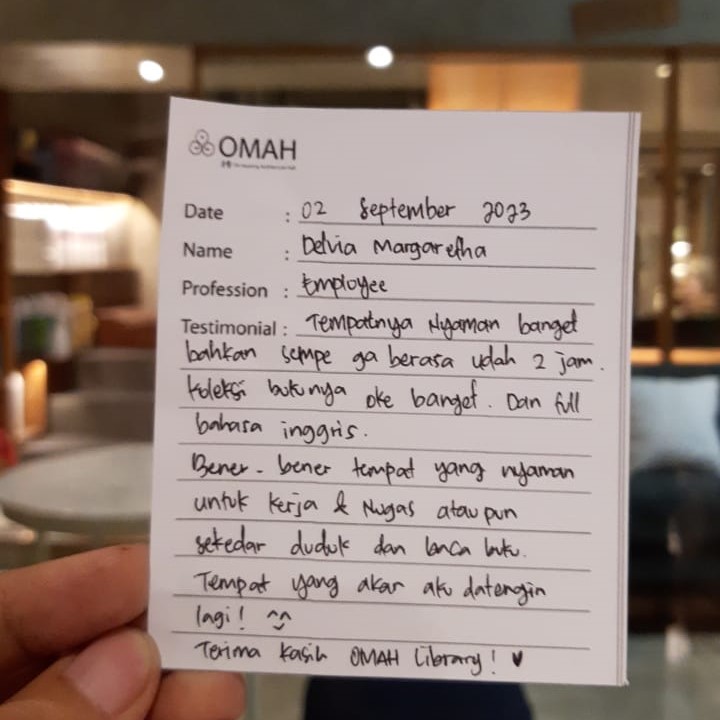 OMAH
Date : 02 September 2023
Name : Delvia Margaretha
Profession : Employee
Testimonial : Tempatnya Nyaman banget
bahkan sempe ga berasa udah 2 jam.
Koleksi bukunya oke banget. Dan full
bahasa inggris.
Bener-bener tempat yang nyaman
untuk kerja & Nugas ataupun
sekedar duduk dan baca buku.
Tempat yang akan aku datengin
lagi! ^^
Terima kasih OMAH Library! ♥